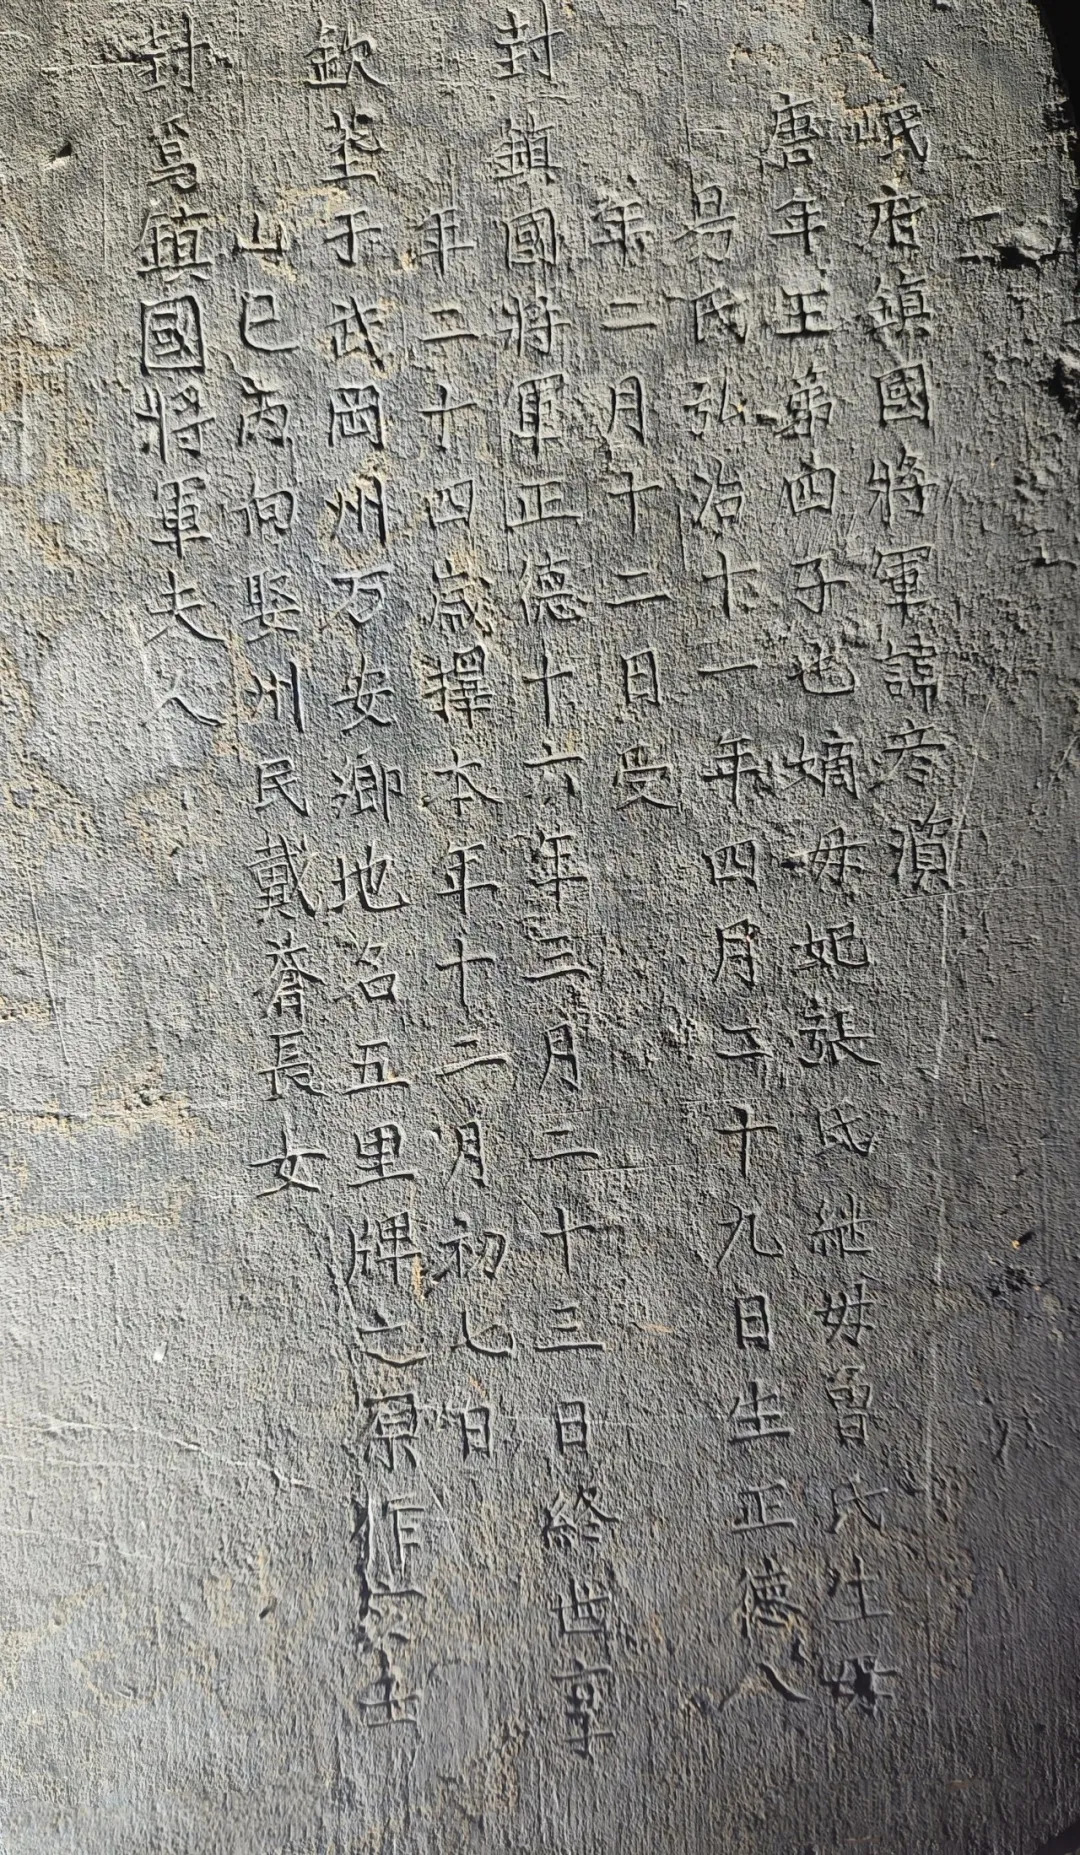 岷府鎮國將軍諱彦濵
唐年王第四子也嫡母妃張氏継母曾氏生母
易氏弘治十一年四月二十九日生正德八
年二月十二日受
封鎮國將軍正德十六年三月二十三日終世享
年二十四歲擇本年十二月初七日
欽塟于武岡州万安鄉地名五里牌之原作
山巳丙向娶州民戴長女
封為鎮國將軍夫人